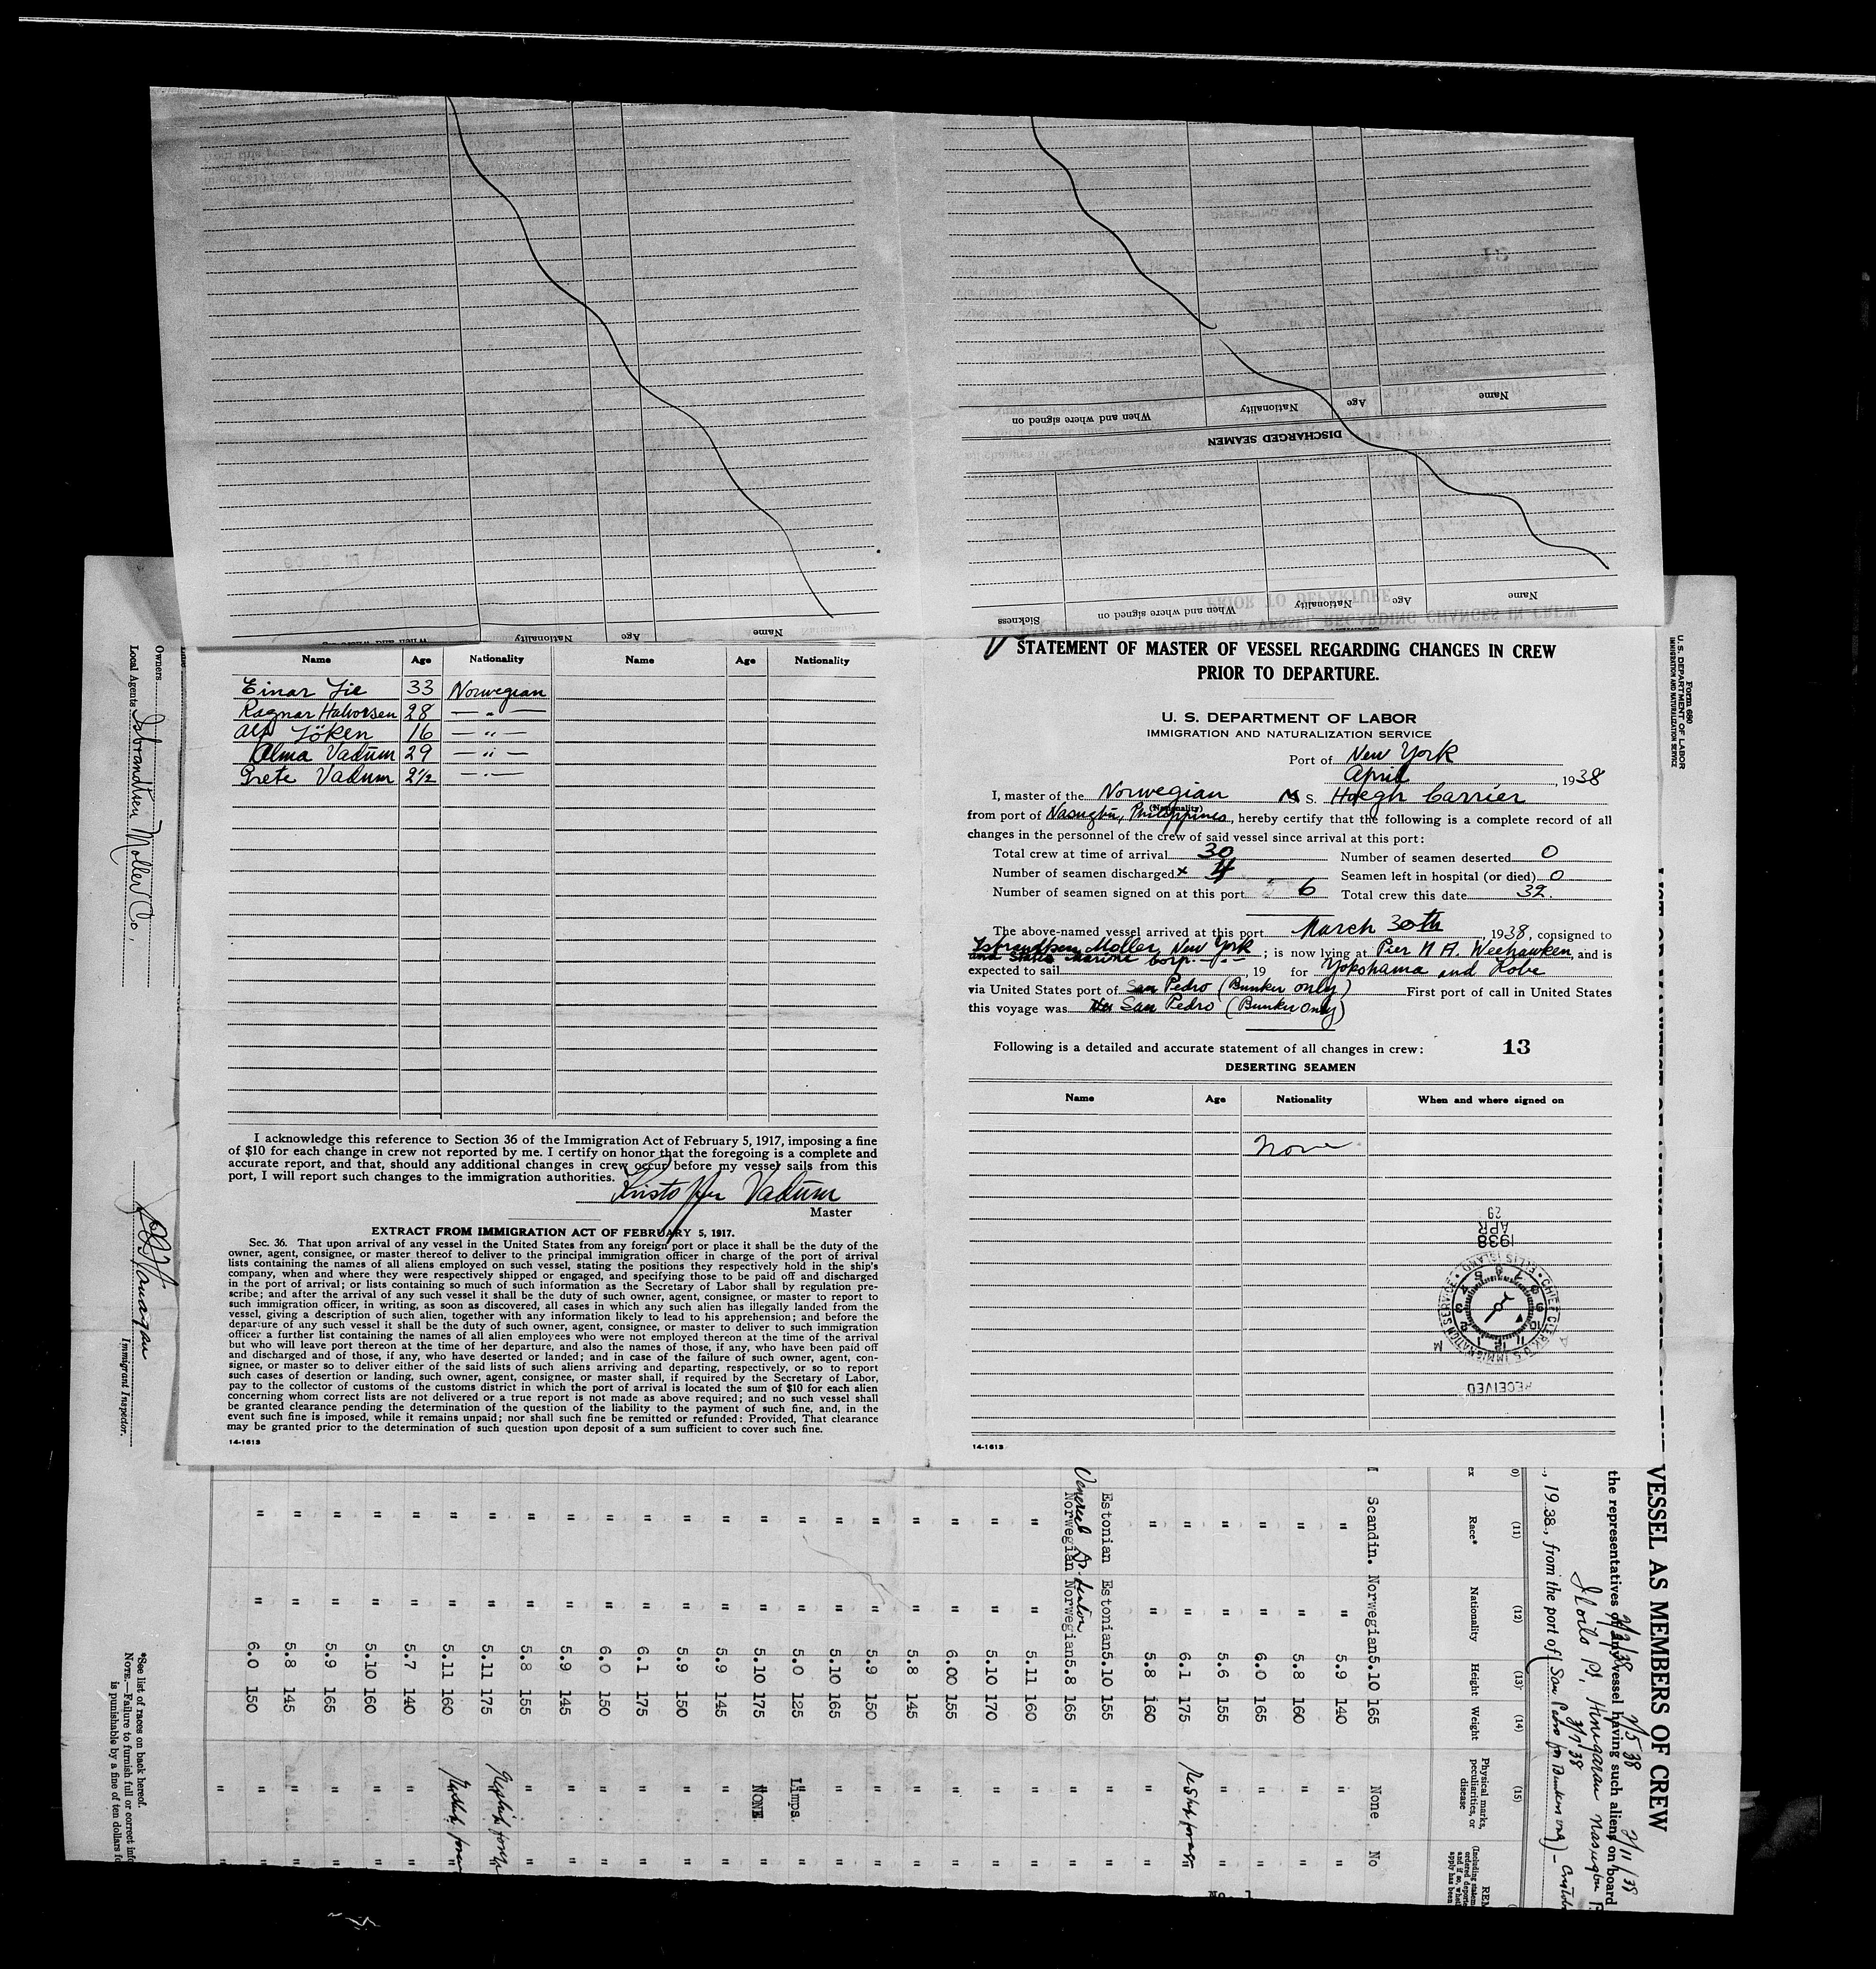 Name Age Nationality When and where signed on
DISCHARGED SEAMEN
Name Age Nationality When and where signed on Sickness
Name Age Nationality
Name Age Nationality Name Age Nationality
Einar Lie 33 Norwegian
Ragnar Halvorsen 28 — " —
Alf Löken 16 — " —
Alma Vadum 29 — " —
Grete Vadum 2½ — " —
I acknowledge this reference to Section 36 of the Immigration Act of February 5, 1917, imposing a fine
of $10 for each change in crew not reported by me. I certify on honor that the foregoing is a complete and
accurate report, and that, should any additional changes in crew occur before my vessel sails from this
port, I will report such changes to the immigration authorities.
Kristoffer Vadum
Master
EXTRACT FROM IMMIGRATION ACT OF FEBRUARY 5, 1917.
Sec. 36. That upon arrival of any vessel in the United States from any foreign port or place it shall be the duty of the
owner, agent, consignee, or master thereof to deliver to the principal immigration officer in charge of the port of arrival
lists containing the names of all aliens employed on such vessel, stating the positions they respectively hold in the ship's
company, when and where they were respectively shipped or engaged, and specifying those to be paid off and discharged
in the port of arrival; or lists containing so much of such information as the Secretary of Labor shall by regulation pre-
scribe; and after the arrival of any such vessel it shall be the duty of such owner, agent, consignee, or master to report to
such immigration officer, in writing, as soon as discovered, all cases in which any such alien has illegally landed from the
vessel, giving a description of such alien, together with any information likely to lead to his apprehension; and before the
departure of any such vessel it shall be the duty of such owner, agent, consignee, or master to deliver to such immigration
officer a further list containing the names of all alien employees who were not employed thereon at the time of the arrival
but who will leave port thereon at the time of her departure, and also the names of those, if any, who have been paid off
and discharged and of those, if any, who have deserted or landed; and in case of the failure of such owner, agent, con-
signee, or master so to deliver either of the said lists of such aliens arriving and departing, respectively, or so to report
such cases of desertion or landing, such owner, agent, consignee, or master shall, if required by the Secretary of Labor,
pay to the collector of customs of the customs district in which the port of arrival is located the sum of $10 for each alien
concerning whom correct lists are not delivered or a true report is not made as above required; and no such vessel shall
be granted clearance pending the determination of the question of the liability to the payment of such fine, and, in the
event such fine is imposed, while it remains unpaid; nor shall such fine be remitted or refunded: Provided, That clearance
may be granted prior to the determination of such question upon deposit of a sum sufficient to cover such fine.
14-1613
STATEMENT OF MASTER OF VESSEL REGARDING CHANGES IN CREW
PRIOR TO DEPARTURE.
U. S. DEPARTMENT OF LABOR
IMMIGRATION AND NATURALIZATION SERVICE
Port of New York
April , 1938
I, master of the Norwegian M S. Höegh Carrier
(Nationality)
from port of Nasugbu, Philippines, hereby certify that the following is a complete record of all
changes in the personnel of the crew of said vessel since arrival at this port:
Total crew at time of arrival 30 Number of seamen deserted 0
Number of seamen discharged x 4 Seamen left in hospital (or died) 0
Number of seamen signed on at this port 6 Total crew this date 32.
The above-named vessel arrived at this port March 30th, 1938, consigned to
Isbrandtsen Moller, New York ; is now lying at Pier N A. Weehawken, and is
and States Marine Corp. - " -
expected to sail , 19 for Yokohama and Kobe
via United States port of San Pedro (Bunker only) First port of call in United States
this voyage was San Pedro (Bunker only)
Following is a detailed and accurate statement of all changes in crew: 13
DESERTING SEAMEN
Name Age Nationality When and where signed on
None
1938
APR
29
CHIEF CLERK U.S. IMMIGRATION SERVICE ELLIS ISLAND
RECEIVED
14-1613
Owners
Local Agents Isbrandtsen Moller Co,
Immigrant Inspector.
*See list of races on back hereof.
NOTE.—Failure to furnish full or correct info
is punishable by a fine of ten dollars fo
Form 680
U. S. DEPARTMENT OF LABOR
IMMIGRATION AND NATURALIZATION SERVICE
VESSEL AS MEMBERS OF CREW
the representatives of any vessel having such aliens on board
2/5 38 3/11/38
Iloilo P.I, Hinigaran Nasugbu
3/7 38
, 19 38, from the port of San Pedro for Bunkers only) -
(11) (12) (13) (14) (15)
Race* Nationality Height Weight Physical marks, peculiarities, or disease
Scandin. Norwegian 5.10 165 None No
" " 5.9 140 " "
" " 5.8 160 " "
" " 6.0 165 " "
" " 5.6 155 " "
" " 6.1 175 "
" " 5.8 160 " "
Estonian Estonian 5.10 155 " "
Norwegian Norwegian 5.8 165 " "
" " 5.11 160 " "
" " 5.10 170 " "
" " 6.00 155 " "
" " 5.8 145 " "
" " 5.9 150 " "
" " 5.10 165 " "
" " 5.0 125 Limps. "
" " 5.10 175 NONE "
" " 5.9 145 " "
" " 5.9 150 " "
" " 6.1 175 " "
" " 6.0 150 " "
" " 5.9 145 " "
" " 5.8 155 " "
" " 5.11 175
" " 5.11 160
" " 5.7 140 " "
" " 5.10 160 " "
" " 5.9 165 " "
" " 5.8 145 " "
" " 6.0 150 " "